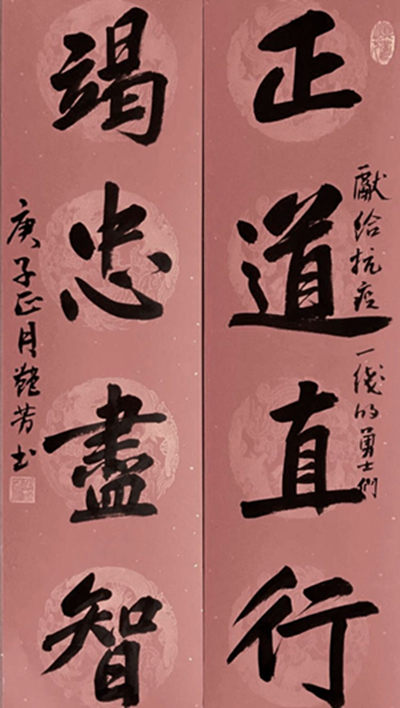 獻給抗疫一线的勇士們
正道直行
竭忠盡智
庚子正月艷芳书